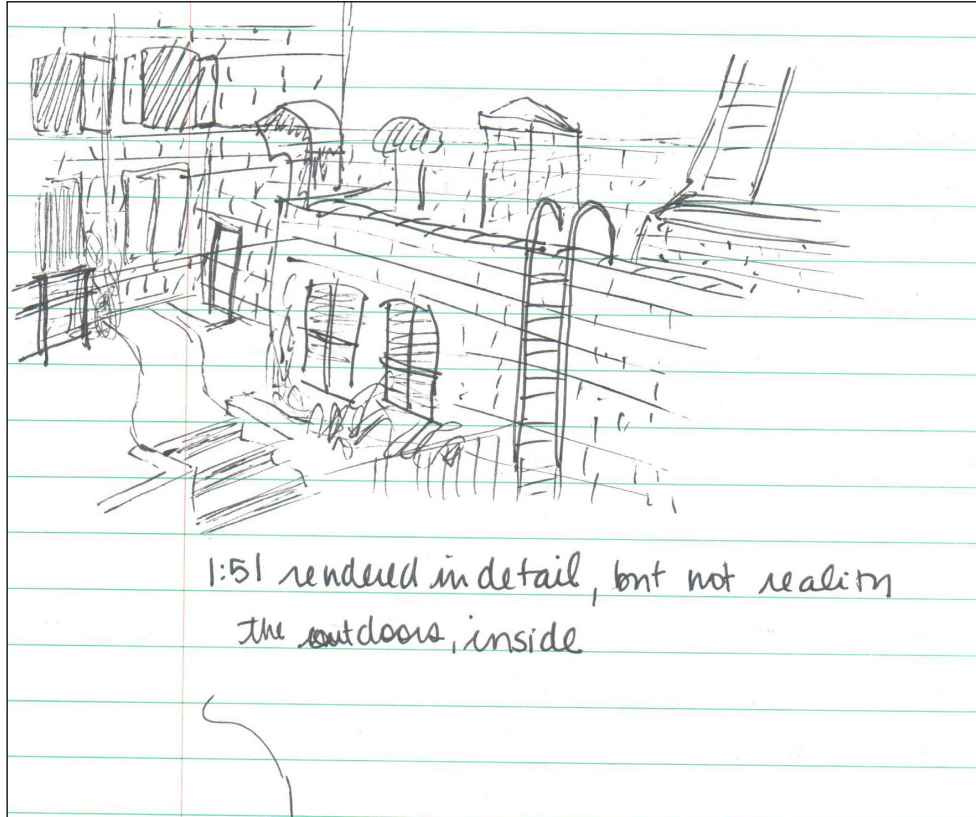 1:51 rendered in detail, but not reality
the outdoors, inside